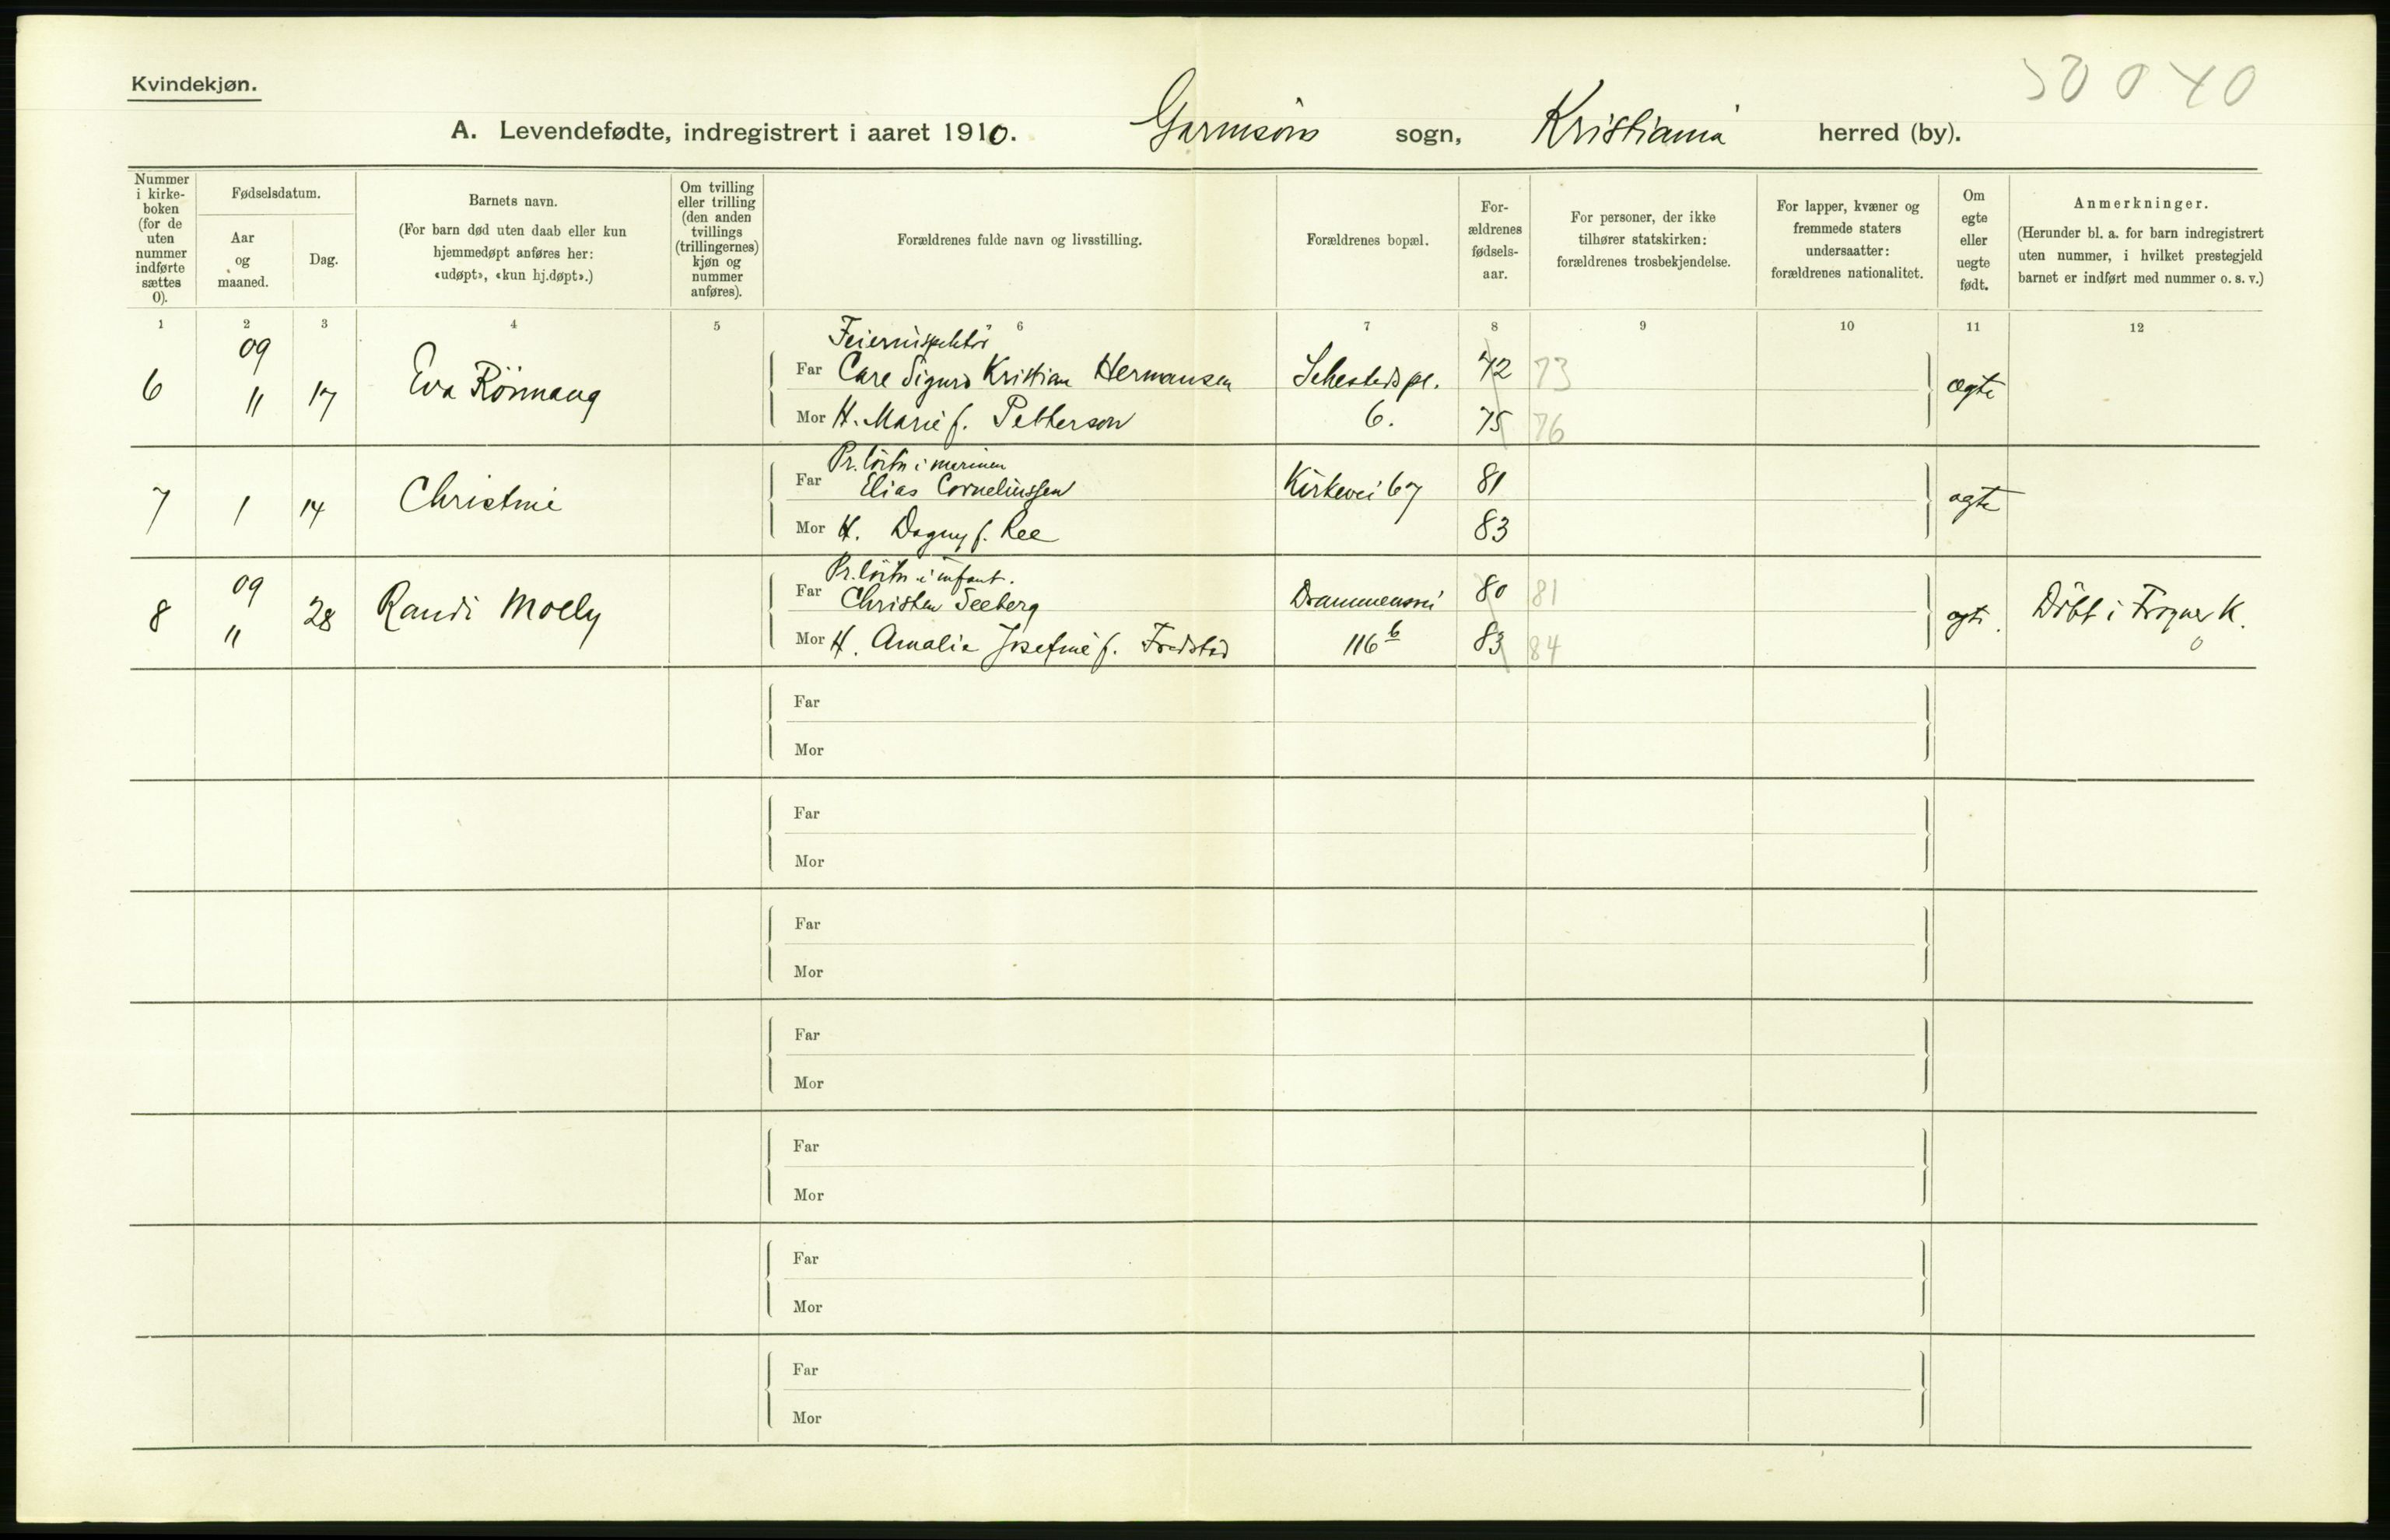 Kvindekjøn.
A. Levendefødte, indregistrert i aaret 1910. Garnisons sogn, Kristiania herred (by).
Nummer i kirkeboken (for de uten nummer indførte sættes 0).
Fødselsdatum.
Aar og maaned.
Dag.
Barnets navn.
(For barn død uten daab eller kun hjemmedøpt anføres her: «udøpt», «kun hj.døpt».)
Om tvilling eller trilling (den anden tvillings (trillingernes) kjøn og nummer anføres).
Forældrenes fulde navn og livsstilling.
Forældrenes bopæl.
Forældrenes fødselsaar.
For personer, der ikke tilhører statskirken: forældrenes trosbekjendelse.
For lapper, kvæner og fremmede staters undersaatter: forældrenes nationalitet.
Om egte eller uegte født.
Anmerkninger.
(Herunder bl. a. for barn indregistrert uten nummer, i hvilket prestegjeld barnet er indført med nummer o. s. v.)
1 2 3 4 5 6 7 8 9 10 11 12
Feierinspektör
6 09 11 17 Eva Rönnaug Far Carl Sigurd Kristian Hermansen Sehesteds pl. 72 73 ægte
Mor H. Marie f. Petterson 6. 75 76
Pr.löitn i marinen
7 1 14 Christine Far Elias Corneliussen Kirkevei 67 81 ægte
Mor H. Dagny f. Ree 83
Pr.löitn i infant.
8 09 11 28 Randi Molly Far Christen Seeberg Drammensvei 80 81 ægte Döbt i Frogner K.
Mor H. Amalie Josefine f. Fredstad 116 b 83 84 0
Far
Mor
Far
Mor
Far
Mor
Far
Mor
Far
Mor
Far
Mor
Far
Mor